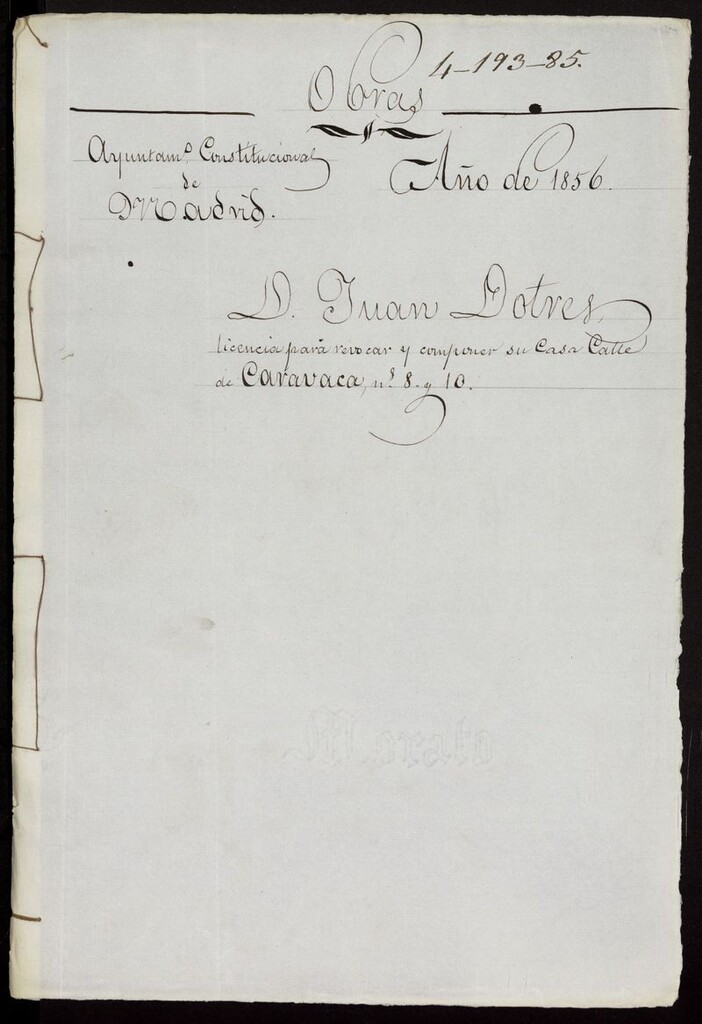 4-193-85.
Obras
Ayuntam.º Constitucional
de
Madrid.
Año de 1856.
D. Juan Dotres,
licencia para revocar y componer su Casa Calle
de Caravaca, n.s 8. y 10.
Morato